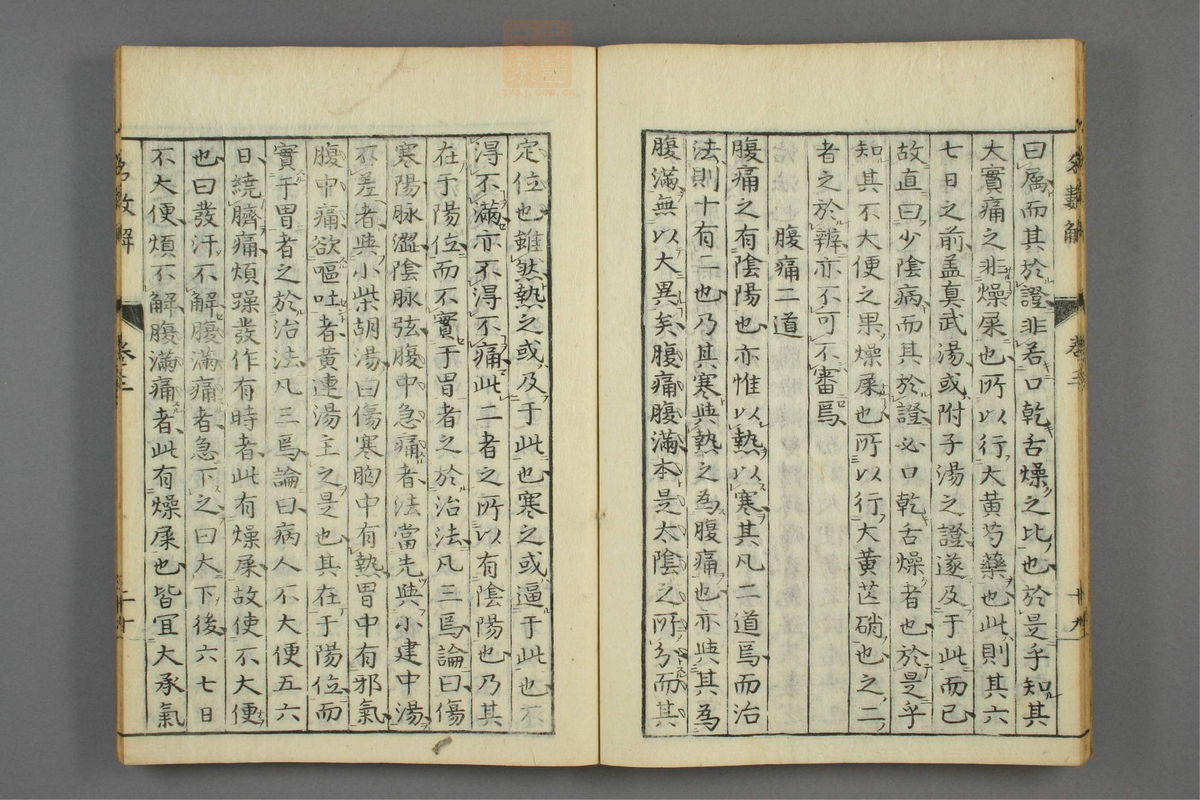 曰屬而其於證非若口乾舌燥之比也於是乎知其
大實痛之非燥屎也所以行大黃芍藥也此則其六
七日之前盖真武湯或附子湯之證遂及于此而已
故直曰少陰病而其於證必口乾舌燥者也於是乎
知其不大便之果燥屎也所以行大黃芒硝也之二
者之於辨亦不可不審焉
腹痛二道
腹痛之有陰陽也亦惟以熱以寒其凡二道焉而治
法則十有二也乃其寒與熱之為腹痛也亦與其為
腹滿無以大異矣腹痛腹滿本是太陰之所分而其
定位也雖然熱之或及于此也寒之或逼于此也不
得不滿亦不得不痛此二者之所以有陰陽也乃其
在于陽位而不實于胃者之於治法凡三焉論曰傷
寒陽脉澀陰脉弦腹中急痛者法當先與小建中湯
不差者與小柴胡湯曰傷寒胸中有熱胃中有邪氣
腹中痛欲嘔吐者黃連湯主之是也其在于陽位而
實于胃者之於治法凡三焉論曰病人不大便五六
日繞臍痛煩躁發作有時者此有燥屎故使不大便
也曰發汗不解腹滿痛者急下之曰大下後六七日
不大便煩不解腹滿痛者此有燥屎也皆宜大承氣
名數解
卷三